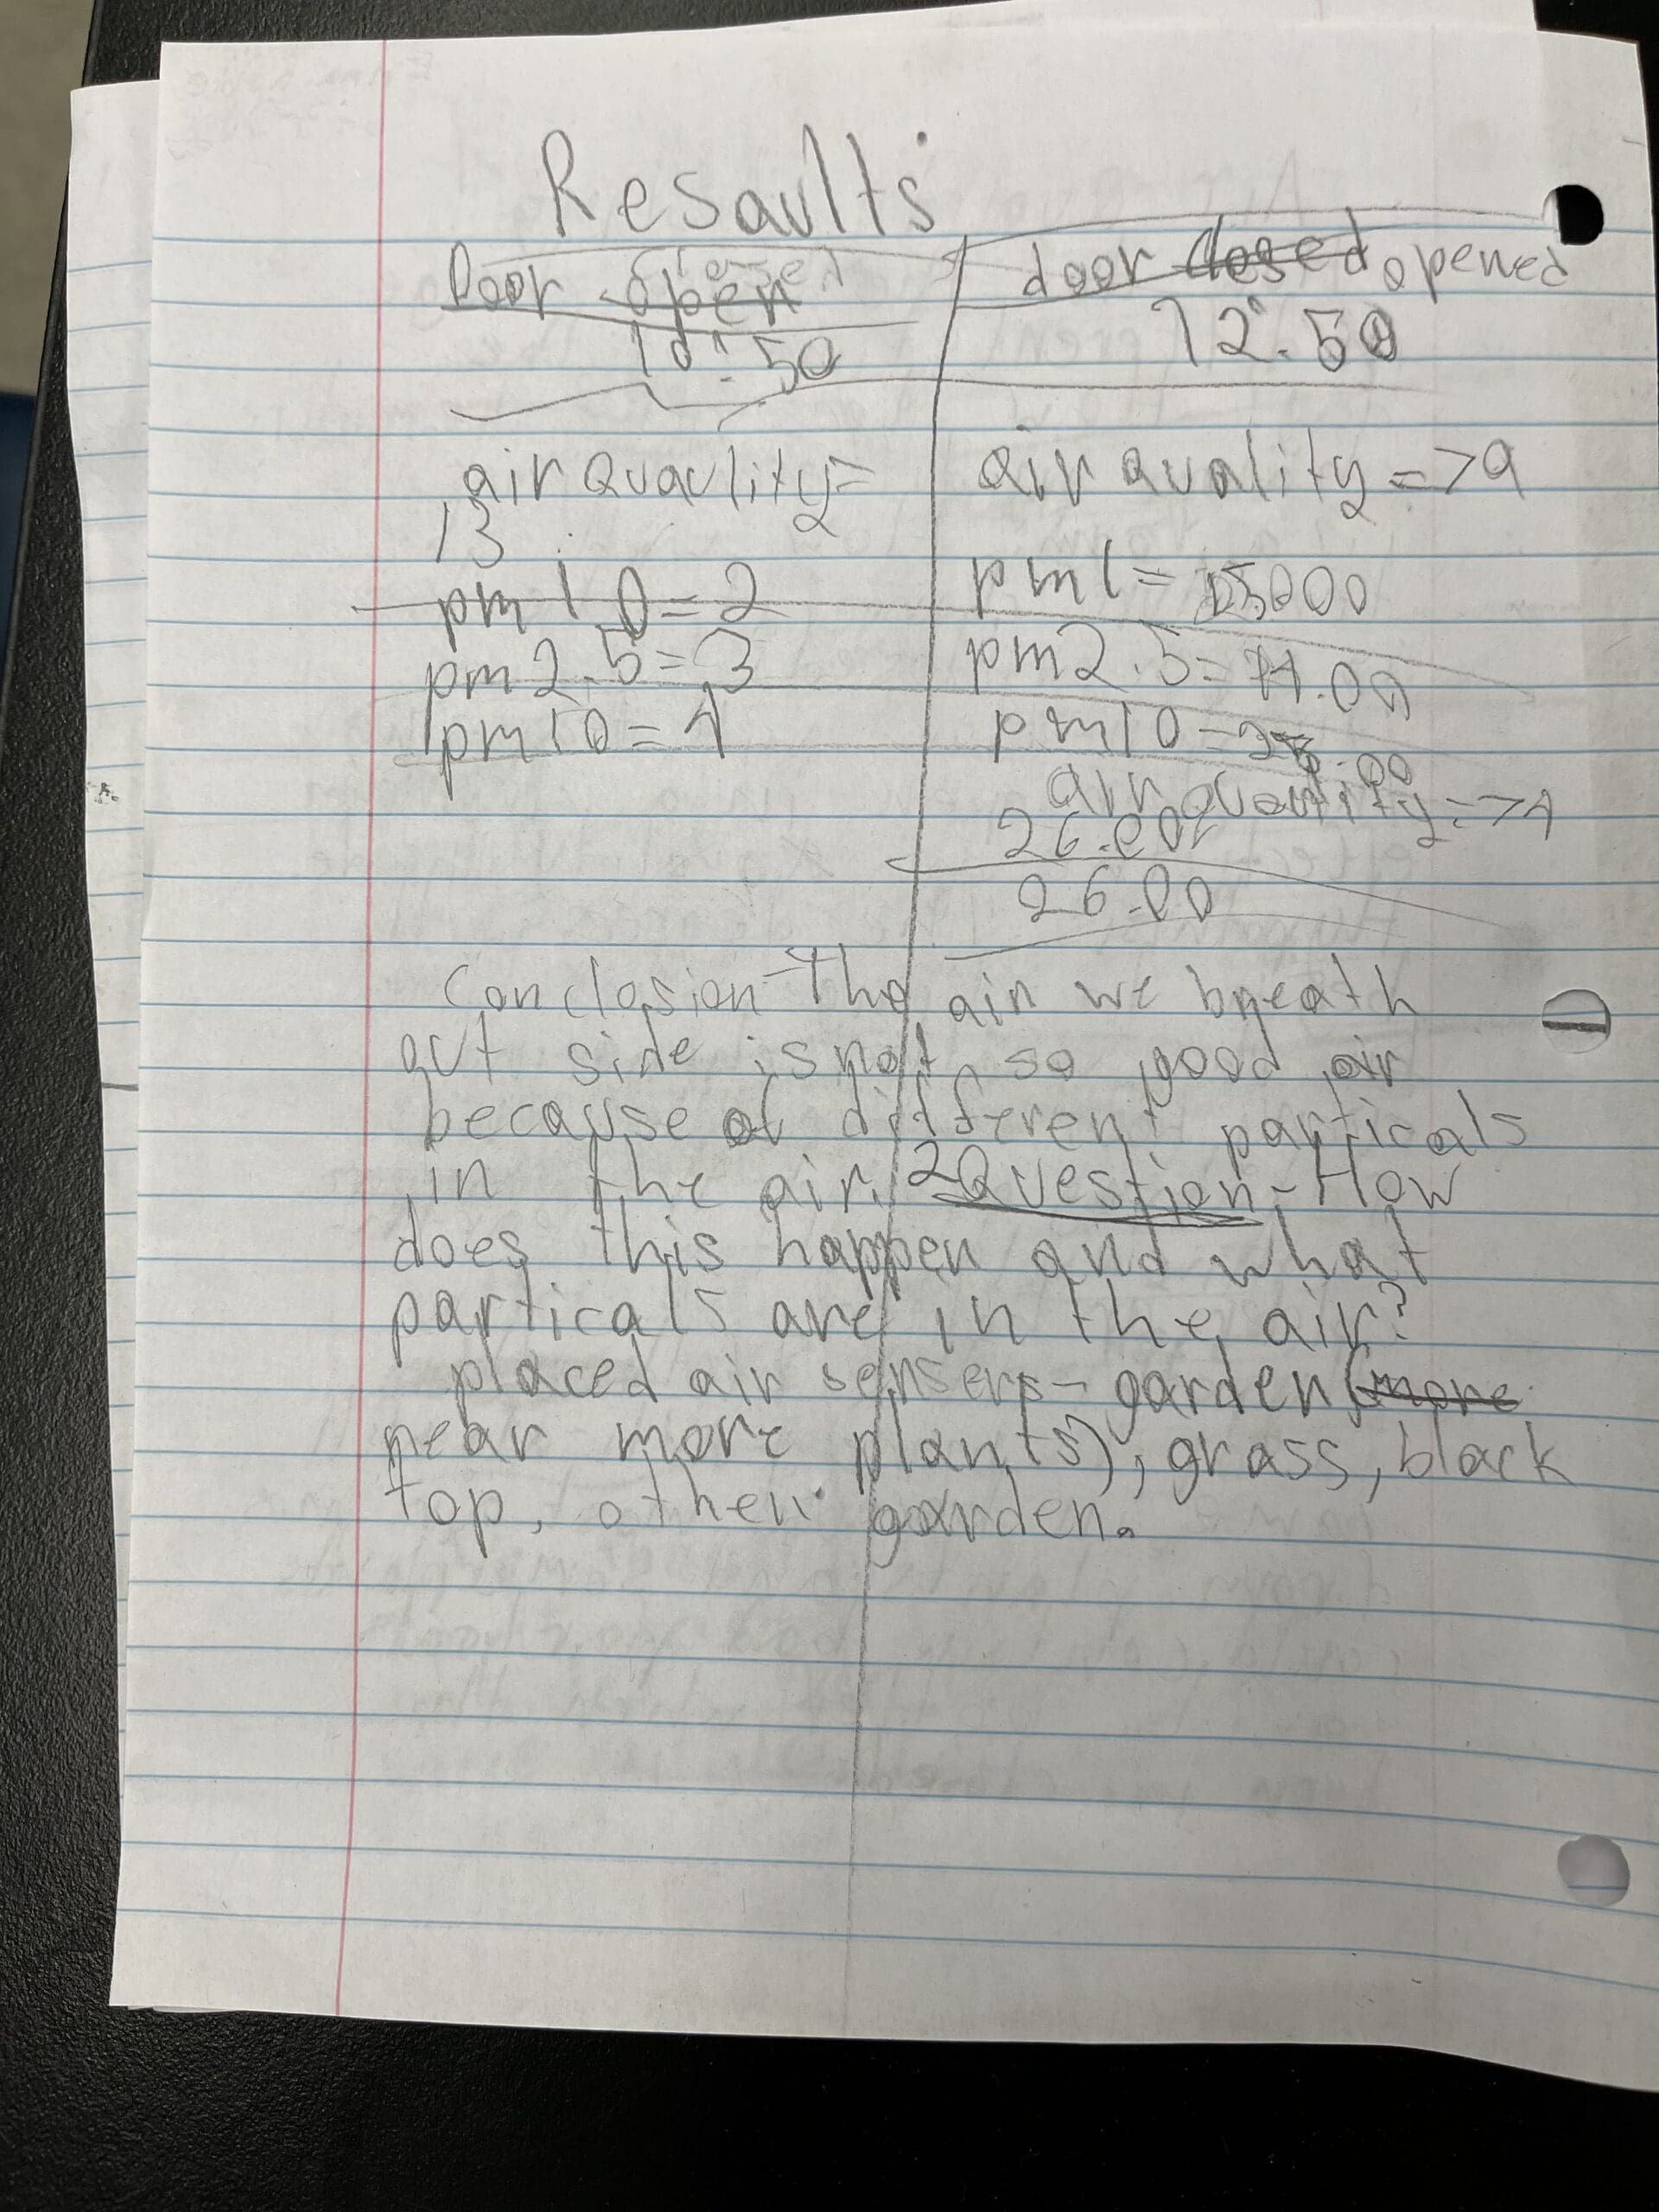 Resaults
Door open closed
door closed opened
12:50
air quaulity=
13
pm 1.0=2
pm 2.5=3
pm10=4
air quality =>9
pm1=
pm2.5=
pm10=
air quality =>
26.00
Conclosion-The air we breath
out side is not so good air
because of different particals
in the air. 2Question-How
does this happen and what
particals are in the air?
placed air sensers-garden(more
near more plants), grass, black
top, other garden.